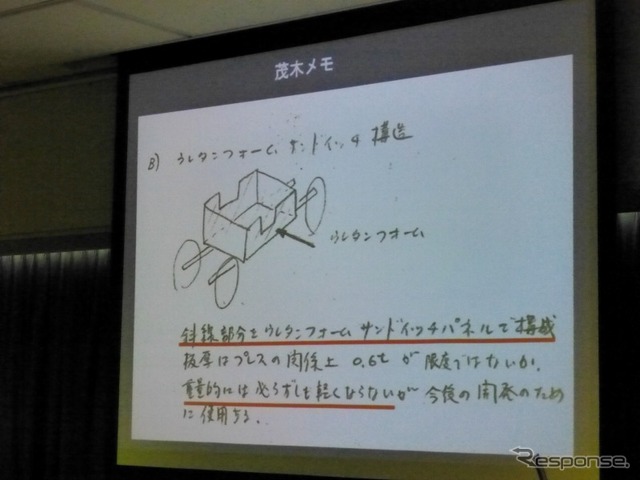 茂木メモ
B) ウレタンフォーム サンドイッチ構造
ウレタンフォーム
斜線部分をウレタンフォームサンドイッチパネルで構成
板厚はプレスの関係上 0.6t が限度ではないか.
重量的には必らずしも軽くならないが今後の開発のため
に使用する.
Response.